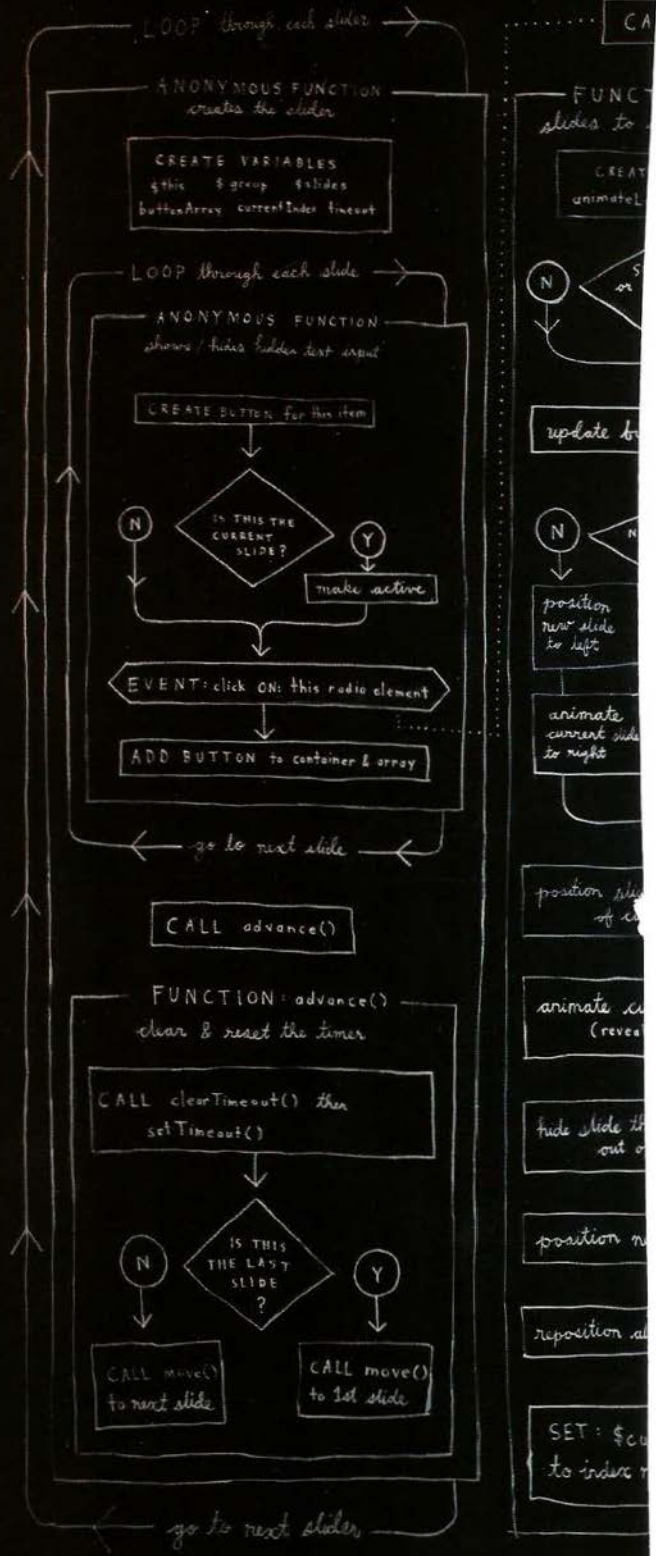 LOOP through each slider
ANONYMOUS FUNCTION
creates the slider
CREATE VARIABLES
$this $group $slides
buttonArray currentIndex timeout
LOOP through each slide
ANONYMOUS FUNCTION
shows / hides hidden text input
CREATE BUTTON for this item
IS THIS THE
CURRENT
SLIDE?
N
Y
make active
EVENT: click ON: this radio element
ADD BUTTON to container & array
go to next slide
CALL advance()
FUNCTION: advance()
clear & reset the timer
CALL clearTimeout() then
setTimeout()
IS THIS
THE LAST
SLIDE
?
N
Y
CALL move()
to next slide
CALL move()
to 1st slide
go to next slider
CA
FUNCT
slides to
CREAT
animateL
N
S
or
update bu
N
N
position
new slide
to left
animate
current slide
to right
position slid
of cu
animate cu
(revea
hide slide th
out o
position ne
reposition al
SET: $cu
to index n